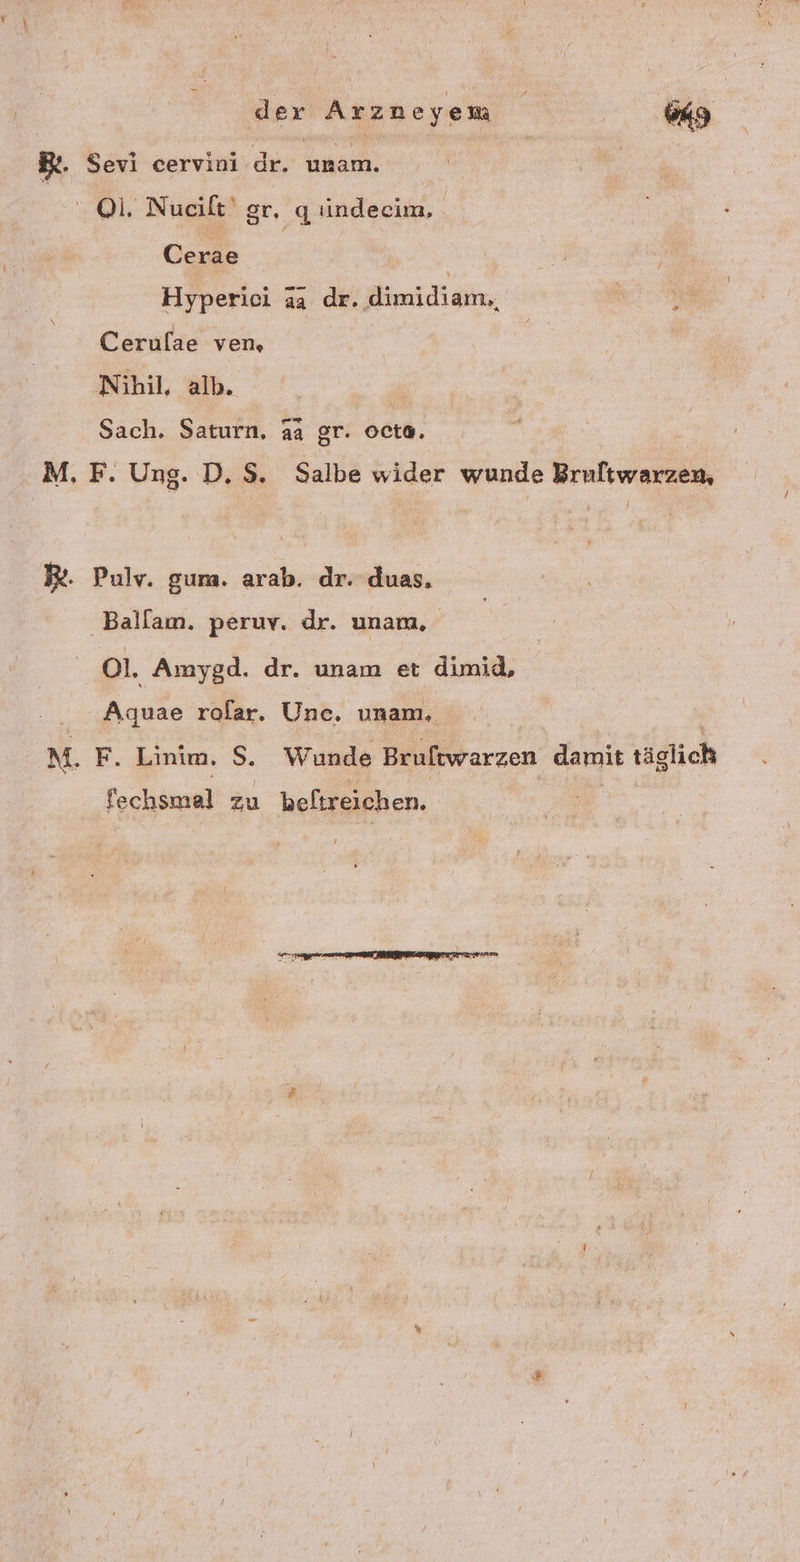 der Arzneyem 649
℞. Sevi cervini dr. unam.
Ol. Nuciſt' gr. q uindecim,
Cerae
Hyperici āā dr. dimidiam,
Ceruſae ven,
Nihil, alb.
Sach. Saturn. āā gr. octo.
M. F. Ung. D. S. Salbe wider wunde Bruſtwarzen,
℞. Pulv. gum. arab. dr. duas.
Balſam. peruv. dr. unam,
Ol. Amygd. dr. unam et dimid,
Aquae roſar. Unc. unam.
M. F. Linim. S. Wunde Bruſtwarzen damit täglich
ſechsmal zu beſtreichen.